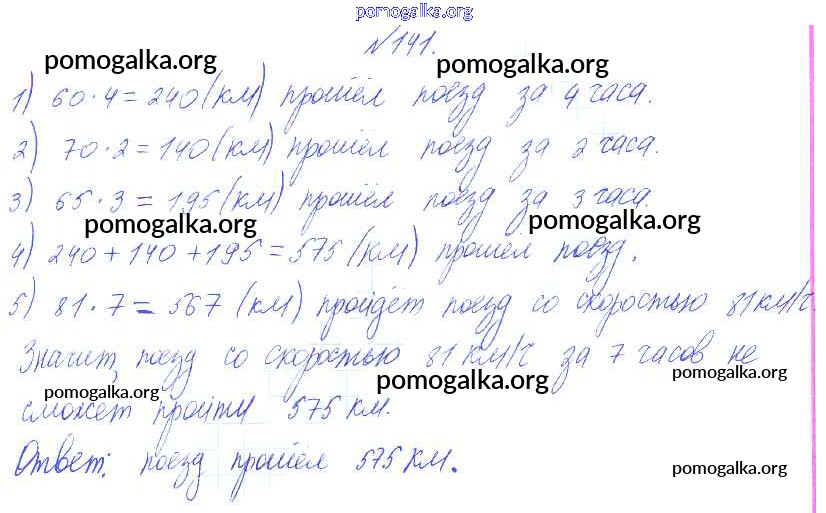 pomogalka.org
№141.
pomogalka.org pomogalka.org
1) 60·4=240(км) прошёл поезд за 4 часа.
2) 70·2=140(км) прошёл поезд за 2 часа.
3) 65·3=195(км) прошёл поезд за 3 часа.
pomogalka.org pomogalka.org
4) 240+140+195=575(км) прошёл поезд.
5) 81·7=567 (км) пройдёт поезд со скоростью 81км/ч.
Значит, поезд со скоростью 81 км/ч за 7 часов не
pomogalka.org pomogalka.org pomogalka.org
сможет пройти 575 км.
Ответ: поезд прошёл 575 км.
pomogalka.org